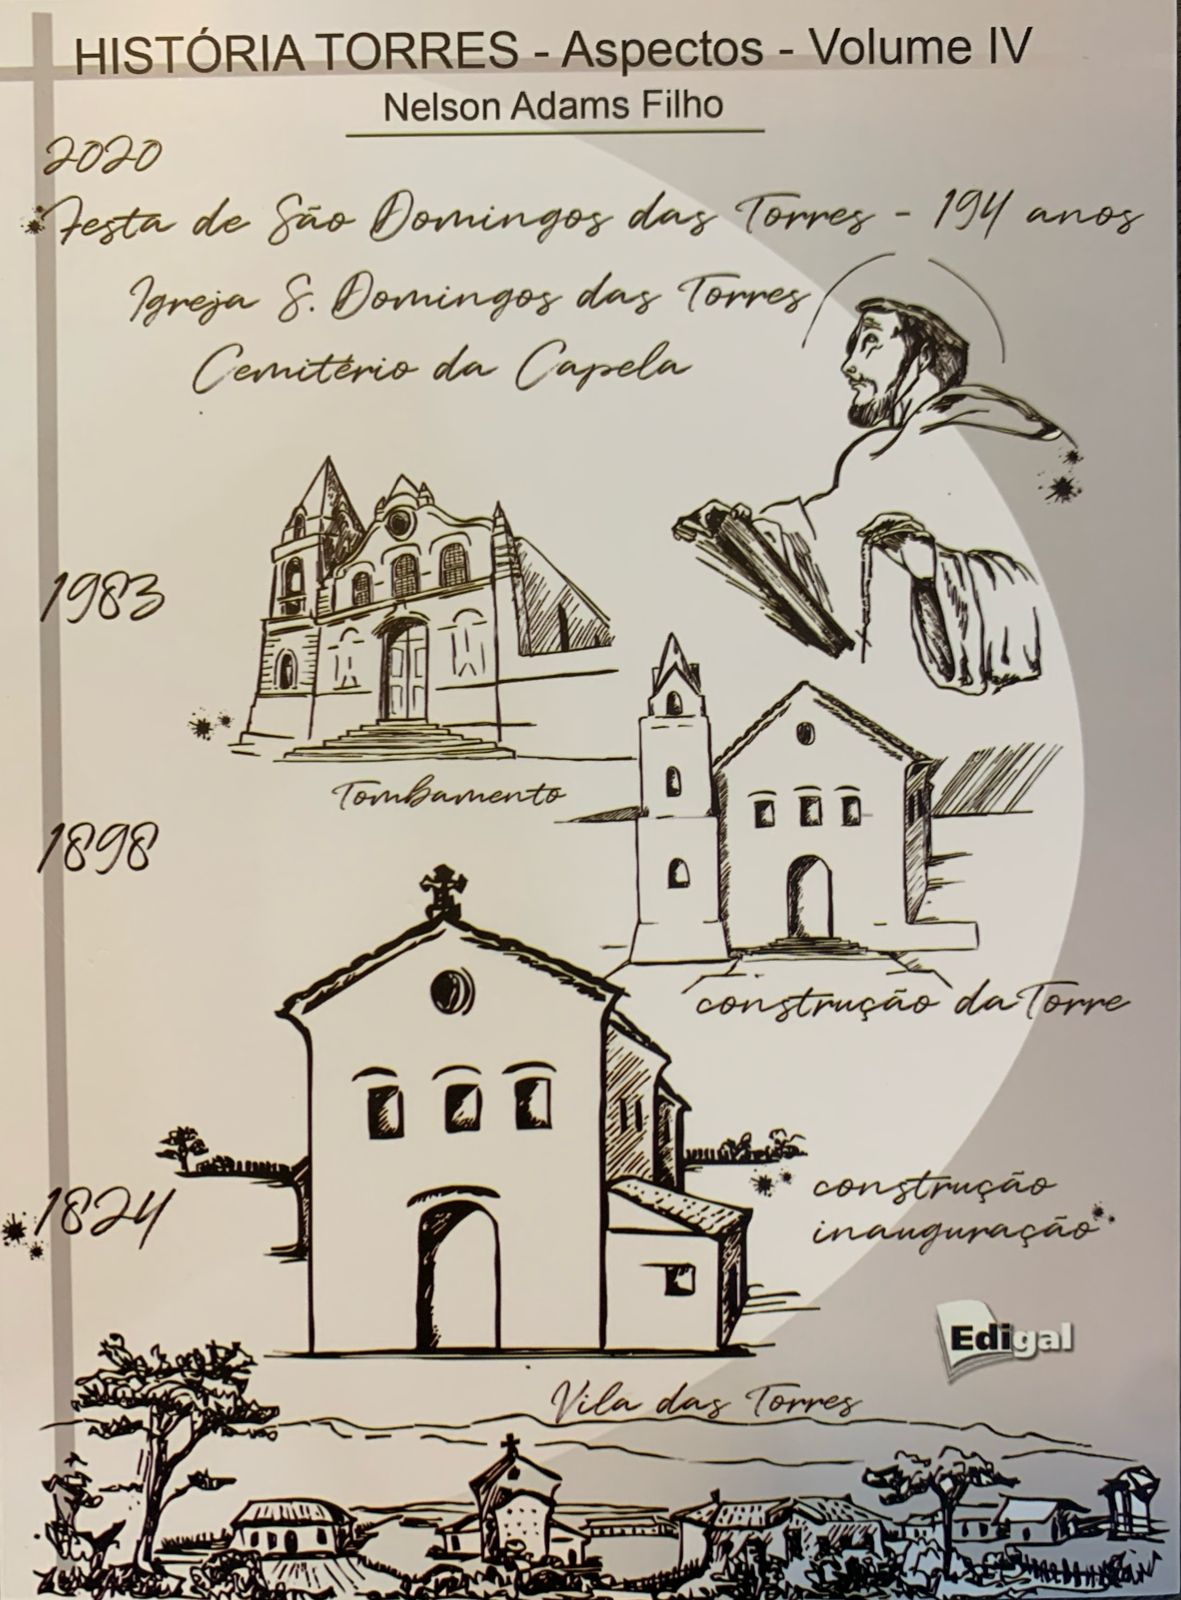 HISTÓRIA TORRES - Aspectos - Volume IV
Nelson Adams Filho
2020
Festa de São Domingos das Torres - 194 anos
Igreja S. Domingos das Torres
Cemitério da Capela
1983
Tombamento
1898
construção da Torre
1824
construção
inauguração
Edigal
Vila das Torres